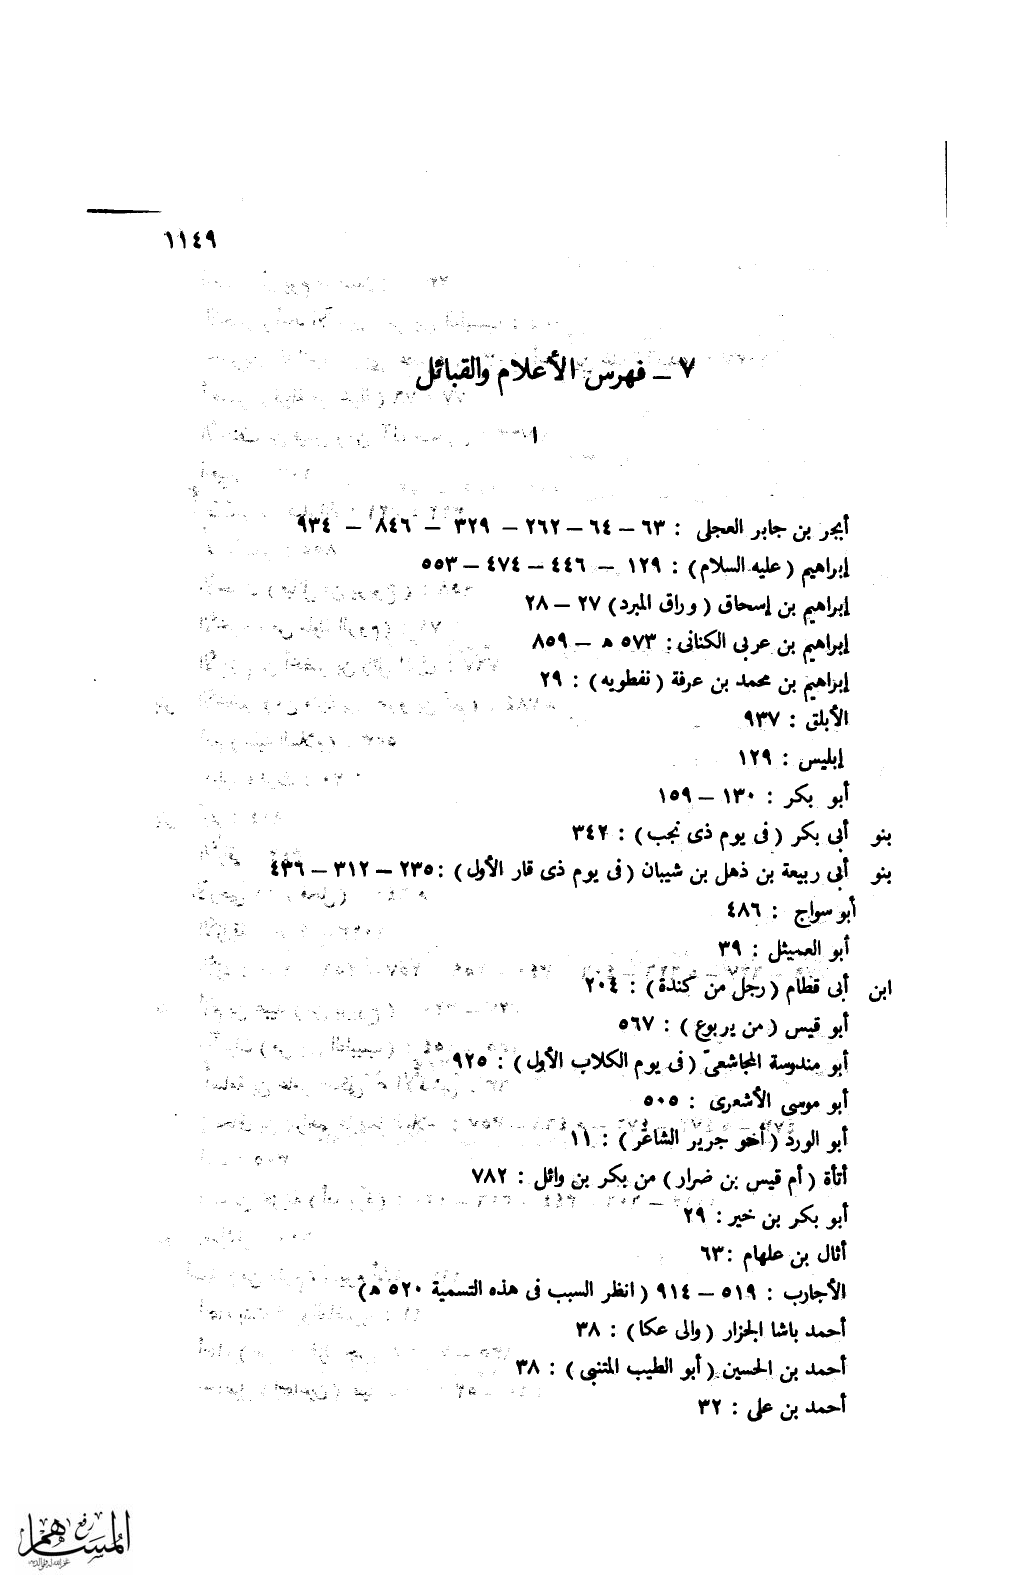 ١١٤٩
٧ – فهرس الأعلام والقبائل
ا
أبجر بن جابر العجلى : ٦٣ – ٦٤ – ٢٦٢ – ٣٢٩ – ٨٤٦ – ٩٣٤
إبراهيم ( عليه السلام ) : ١٢٩ – ٤٤٦ – ٤٧٤ – ٥٥٣
إبراهيم بن إسحاق ( وراق المبرد ) ٢٧ – ٢٨
إبراهيم بن عربى الكنانى : ٥٧٣ هـ – ٨٥٩
إبراهيم بن محمد بن عرفة ( نفطويه ) : ٢٩
الأبلق : ٩٣٧
إبليس : ١٢٩
أبو بكر : ١٣٠ – ١٥٩
بنو أبى بكر ( فى يوم ذى نجب ) : ٣٤٢
بنو أبى ربيعة بن ذهل بن شيبان ( فى يوم ذى قار الأول ) : ٢٣٥ – ٣١٢ – ٤٣٦
أبو سواج : ٤٨٦
أبو العميثل : ٣٩
ابن أبى قطام ( رجل من كندة ) : ٢٠٤
أبو قيس ( من يربوع ) : ٥٦٧
أبو مندوسة المجاشعىّ ( فى يوم الكلاب الأول ) : ٩٢٥
أبو موسى الأشعرى : ٥٠٥
أبو الورد ( أخو جرير الشاعر ) : ١١
أتأة ( أم قيس بن ضرار ) من بكر بن وائل : ٧٨٢
أبو بكر بن خير : ٢٩
أثال بن علهام : ٦٣
الأجارب : ٥١٩ – ٩١٤ ( انظر السبب فى هذه التسمية ٥٢٠ هـ )
أحمد باشا الجزار ( والى عكا ) : ٣٨
أحمد بن الحسين ( أبو الطيب المتنبى ) : ٣٨
أحمد بن على : ٣٢